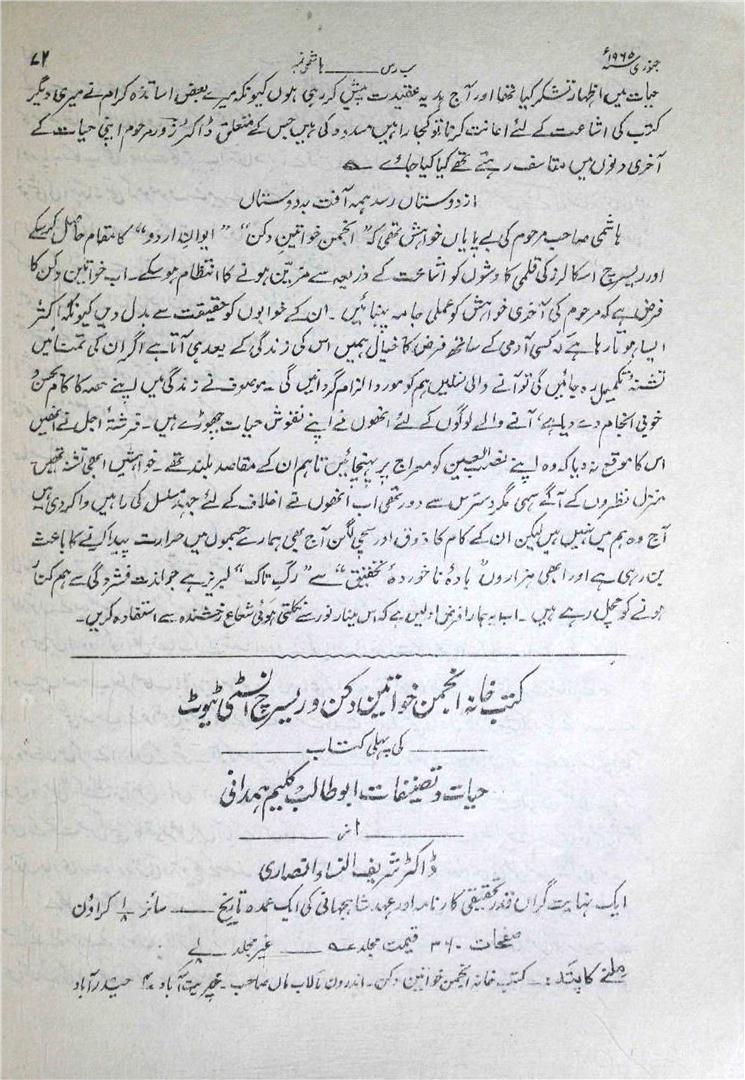 جنوری ۱۹۶۵ء سب رس ــــ ہاشمی نمبر ۷۲
حیات میں اظہار تشکر کیا تھا اور آج ہدیہ عقیدت پیش کر رہی ہوں کیونکہ میرے بعض اساتذہ کرام نے میری دیگر
کتب کی اشاعت کے لئے اعانت کرنا تو کجا راہیں مسدود کی ہیں جس کے متعلق ڈاکٹر زور مرحوم اپنی حیات کے
آخری دنوں میں متاسف رہتے تھے کیا کیا جائے
از دوستاں رسد ہمہ آفت بدوستاں
ہاشمی صاحب مرحوم کی بے پایاں خواہش تھی کہ "انجمن خواتین دکن" "ایوان اردو" کا مقام حاصل کر سکے
اور ریسرچ اسکالرز کی قلمی کاوشوں کو اشاعت کے ذریعہ سے مزین ہونے کا انتظام ہو سکے۔ اب خواتین دکن کا
فرض ہے کہ مرحوم کی آخری خواہش کو عملی جامہ پہنائیں۔ ان کے خوابوں کو حقیقت سے بدل دیں کیونکہ اکثر
ایسا ہوتا رہا ہے کہ کسی آدمی کے ساتھ فرض کا خیال ہمیں اس کی زندگی کے بعد ہی آتا ہے اگر ان کی تمنائیں
تشنۂ تکمیل رہ جائیں گی تو آنے والی نسلیں ہم کو مورد الزام گردانیں گی۔ موصوف نے زندگی میں اپنے حصہ کا کام بحسن و
خوبی انجام دے دیا ہے، آنے والے لوگوں کے لئے انھوں نے اپنے نقوش حیات چھوڑے ہیں۔ فرشتۂ اجل نے انھیں
اس کا موقع نہ دیا کہ وہ اپنے نصب العین کو معراج پر پہنچائیں تاہم ان کے مقاصد بلند تھے۔ خواہشیں ابھی تشنہ تھیں
منزل نظروں کے آگے سہی مگر دسترس سے دور تھی اب انھوں نے اخلاف کے لئے جہد مسلسل کی راہیں وا کر دی ہیں
آج وہ ہم میں نہیں ہیں لیکن ان کے کام کا ذوق اور سچی لگن آج بھی ہمارے جسموں میں حرارت پیدا کرنے کا باعث
بن رہی ہے اور ابھی ہزاروں "بادۂ ناخوردۂ تحقیق" سے "رگ تاک" لبریز ہے جو لذت فشردگی سے ہم کنار
ہونے کو مچل رہے ہیں۔ اب یہ ہمارا فرض اولیں ہے کہ اس مینار نور سے نکلتی ہوئی شعاع رخشندہ سے استفادہ کریں۔
کتب خانہ انجمن خواتین دکن و ریسرچ انسٹی ٹیوٹ
کی پہلی کتاب
حیات و تصنیفات ابو طالب کلیم ہمدانی
از
ڈاکٹر شریف النساء انصاری
ایک نہایت گراں قدر تحقیقی کارنامہ اور عہد شاہجہانی کی ایک عمدہ تاریخ ــــ سائز ۱/۸ کراؤن
صفحات ۳۶۰ قیمت مجلد ــــ غیر مجلد
ملنے کا پتہ :۔ کتب خانہ انجمن خواتین دکن۔ اندرون تالاب ماں صاحب۔ خیریت آباد ۴ حیدرآباد